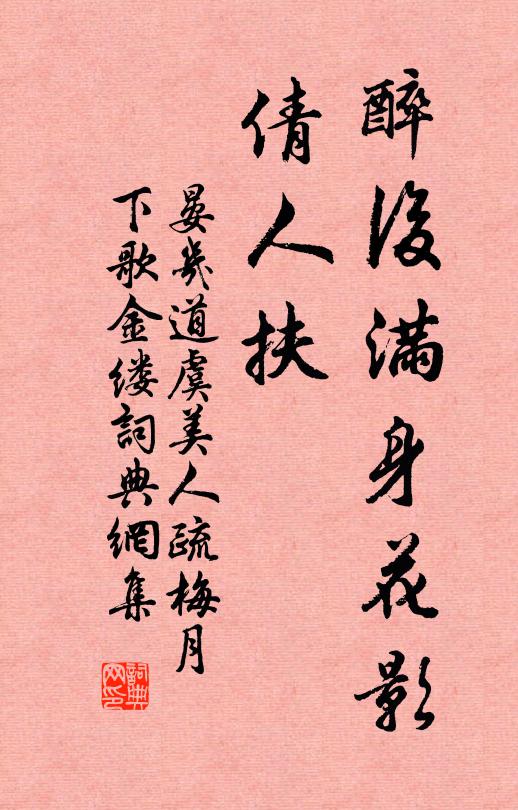 醉後滿身花影
倩人扶
晏幾道虞美人疏梅月
下歌金缕詞典網集
詞典网印